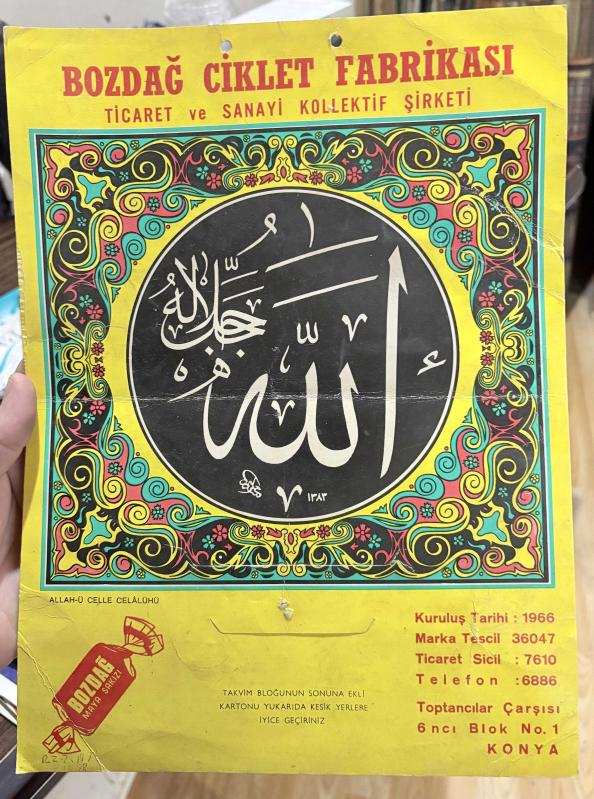 BOZDAĞ CİKLET FABRİKASI
TİCARET ve SANAYİ KOLLEKTİF ŞİRKETİ
الله
جل جلاله
١٣٨٣
ALLAH-Ü CELLE CELÂLÜHÜ
BOZDAĞ
MAYA SAKIZI
TAKVİM BLOĞUNUN SONUNA EKLİ
KARTONU YUKARIDA KESİK YERLERE
İYİCE GEÇİRİNİZ
Kuruluş Tarihi : 1966
Marka Tescil 36047
Ticaret Sicil : 7610
Telefon : 6886
Toptancılar Çarşısı
6 ncı Blok No. 1
KONYA